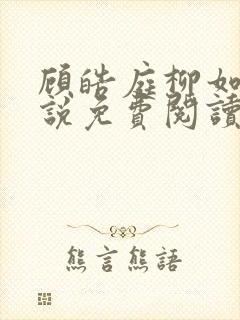 顾皓庭柳如
説免費閱讀
熊言熊語